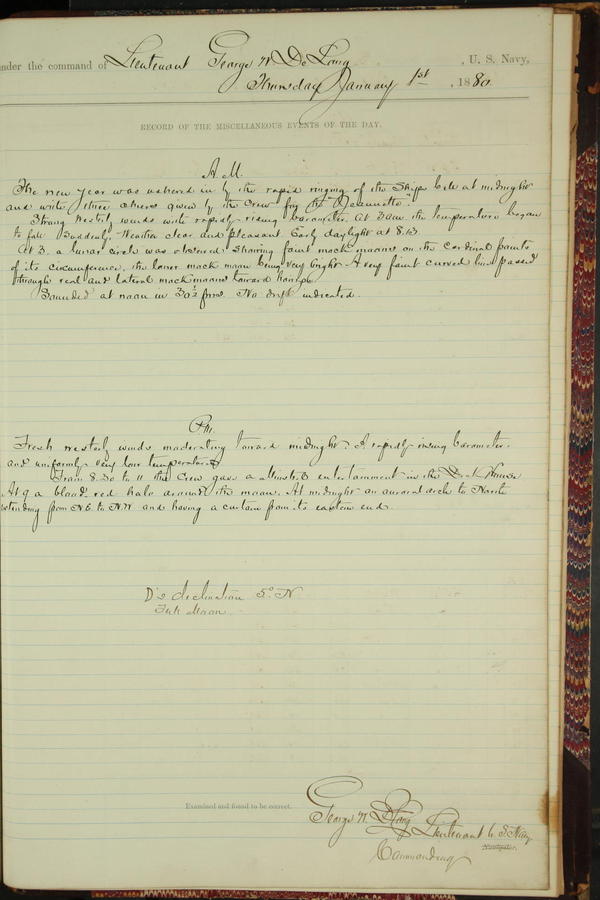 under the command of Lieutenant George W. De Long, U. S. Navy,
Thursday January 1st, 1880.
RECORD OF THE MISCELLANEOUS EVENTS OF THE DAY.
A.M.
The new year was ushered in by the rapid ringing of the Ship's bell at midnight
and with three cheers given by the Crew for the "Jeannette".
Strong Westerly winds with rapidly rising barometer. At 3 a.m. the temperature began
to fall suddenly. Weather clear and pleasant. Early daylight at 8.
At 3. a lunar circle was observed showing faint mock moons on the Cardinal points
of its circumference, the lower mock moon being very bright. A very faint curved line passed
through real and lateral mock moons toward horizon
Sounded at noon in 30½ fms. No drift indicated.
P.M.
Fresh westerly winds moderating toward midnight. A rapidly rising barometer.
and uniformly very low temperatures
From 8.30 to 11 the Crew gave a Minstrel entertainment in the Deck House
At 9 a blood red halo around the moon. At midnight an auroral arch to North
extending from N.E. to N.W. and having a curtain from its eastern end.
D's declination 5° N
Full Moon.
Examined and found to be correct.
George W. De Long Lieutenant U. S. Navy
Navigator.
Commanding